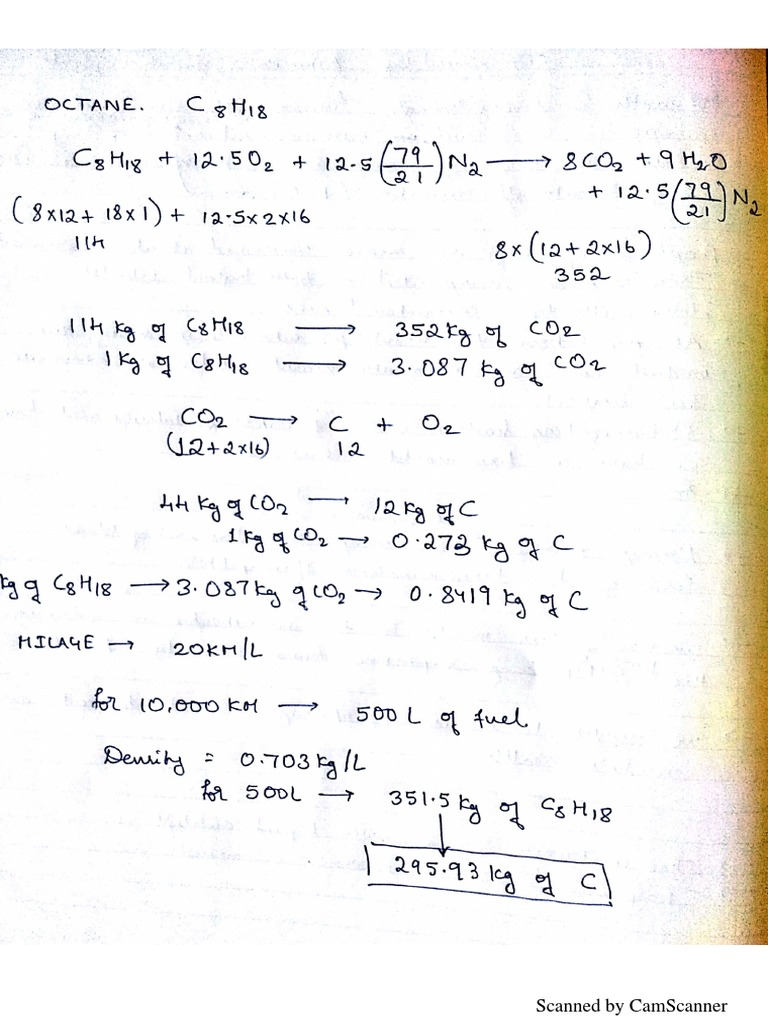 OCTANE. C8H18
C8H18 + 12.5O2 + 12.5(79/21)N2 ⟶ 8CO2 + 9H2O
+ 12.5(79/21)N2
(8×12+ 18×1) + 12.5×2×16
114
8×(12+2×16)
352
114 kg of C8H18 ⟶ 352kg of CO2
1kg of C8H18 ⟶ 3.087 kg of CO2
CO2 ⟶ C + O2
(12+2×16) 12
44 kg of CO2 ⟶ 12kg of C
1kg of CO2 → 0.273 kg of C
kg of C8H18 ⟶ 3.087kg of CO2 → 0.8419 kg of C
MILAGE → 20KM/L
for 10,000 KM ⟶ 500 L of fuel
Density = 0.703 kg/L
for 500L → 351.5 kg of C8H18
↓
295.93 kg of C
Scanned by CamScanner